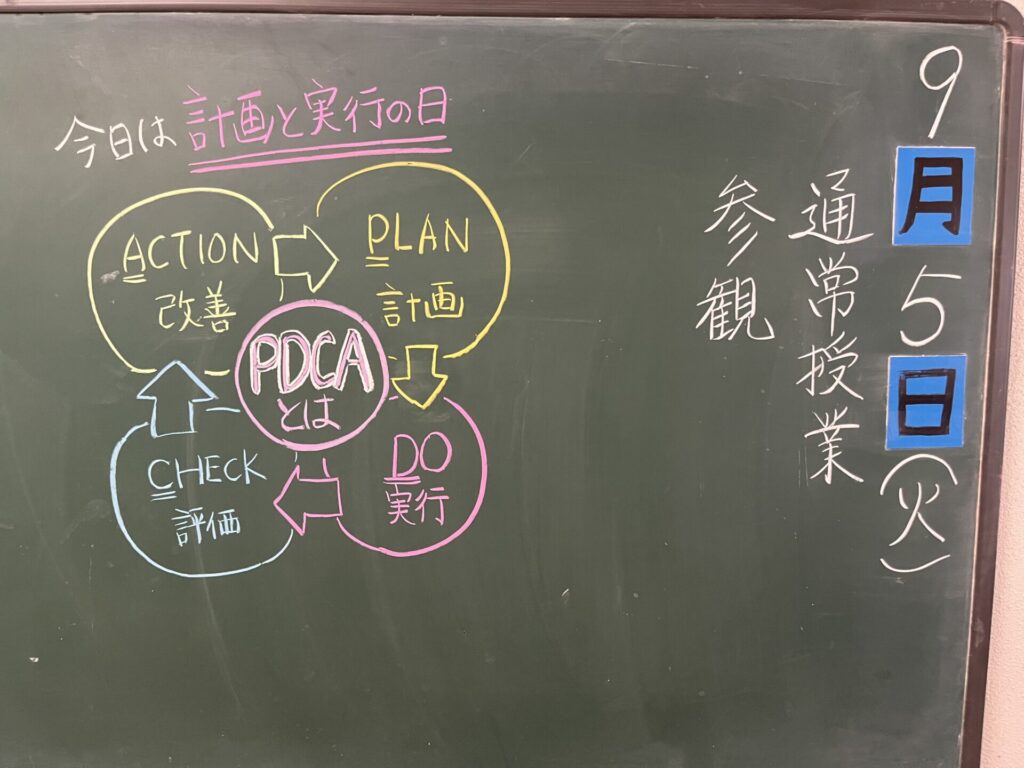 9月5日(火)
通常授業
参観
今日は計画と実行の日
PLAN
計画
DO
実行
CHECK
評価
ACTION
改善
PDCA
とは